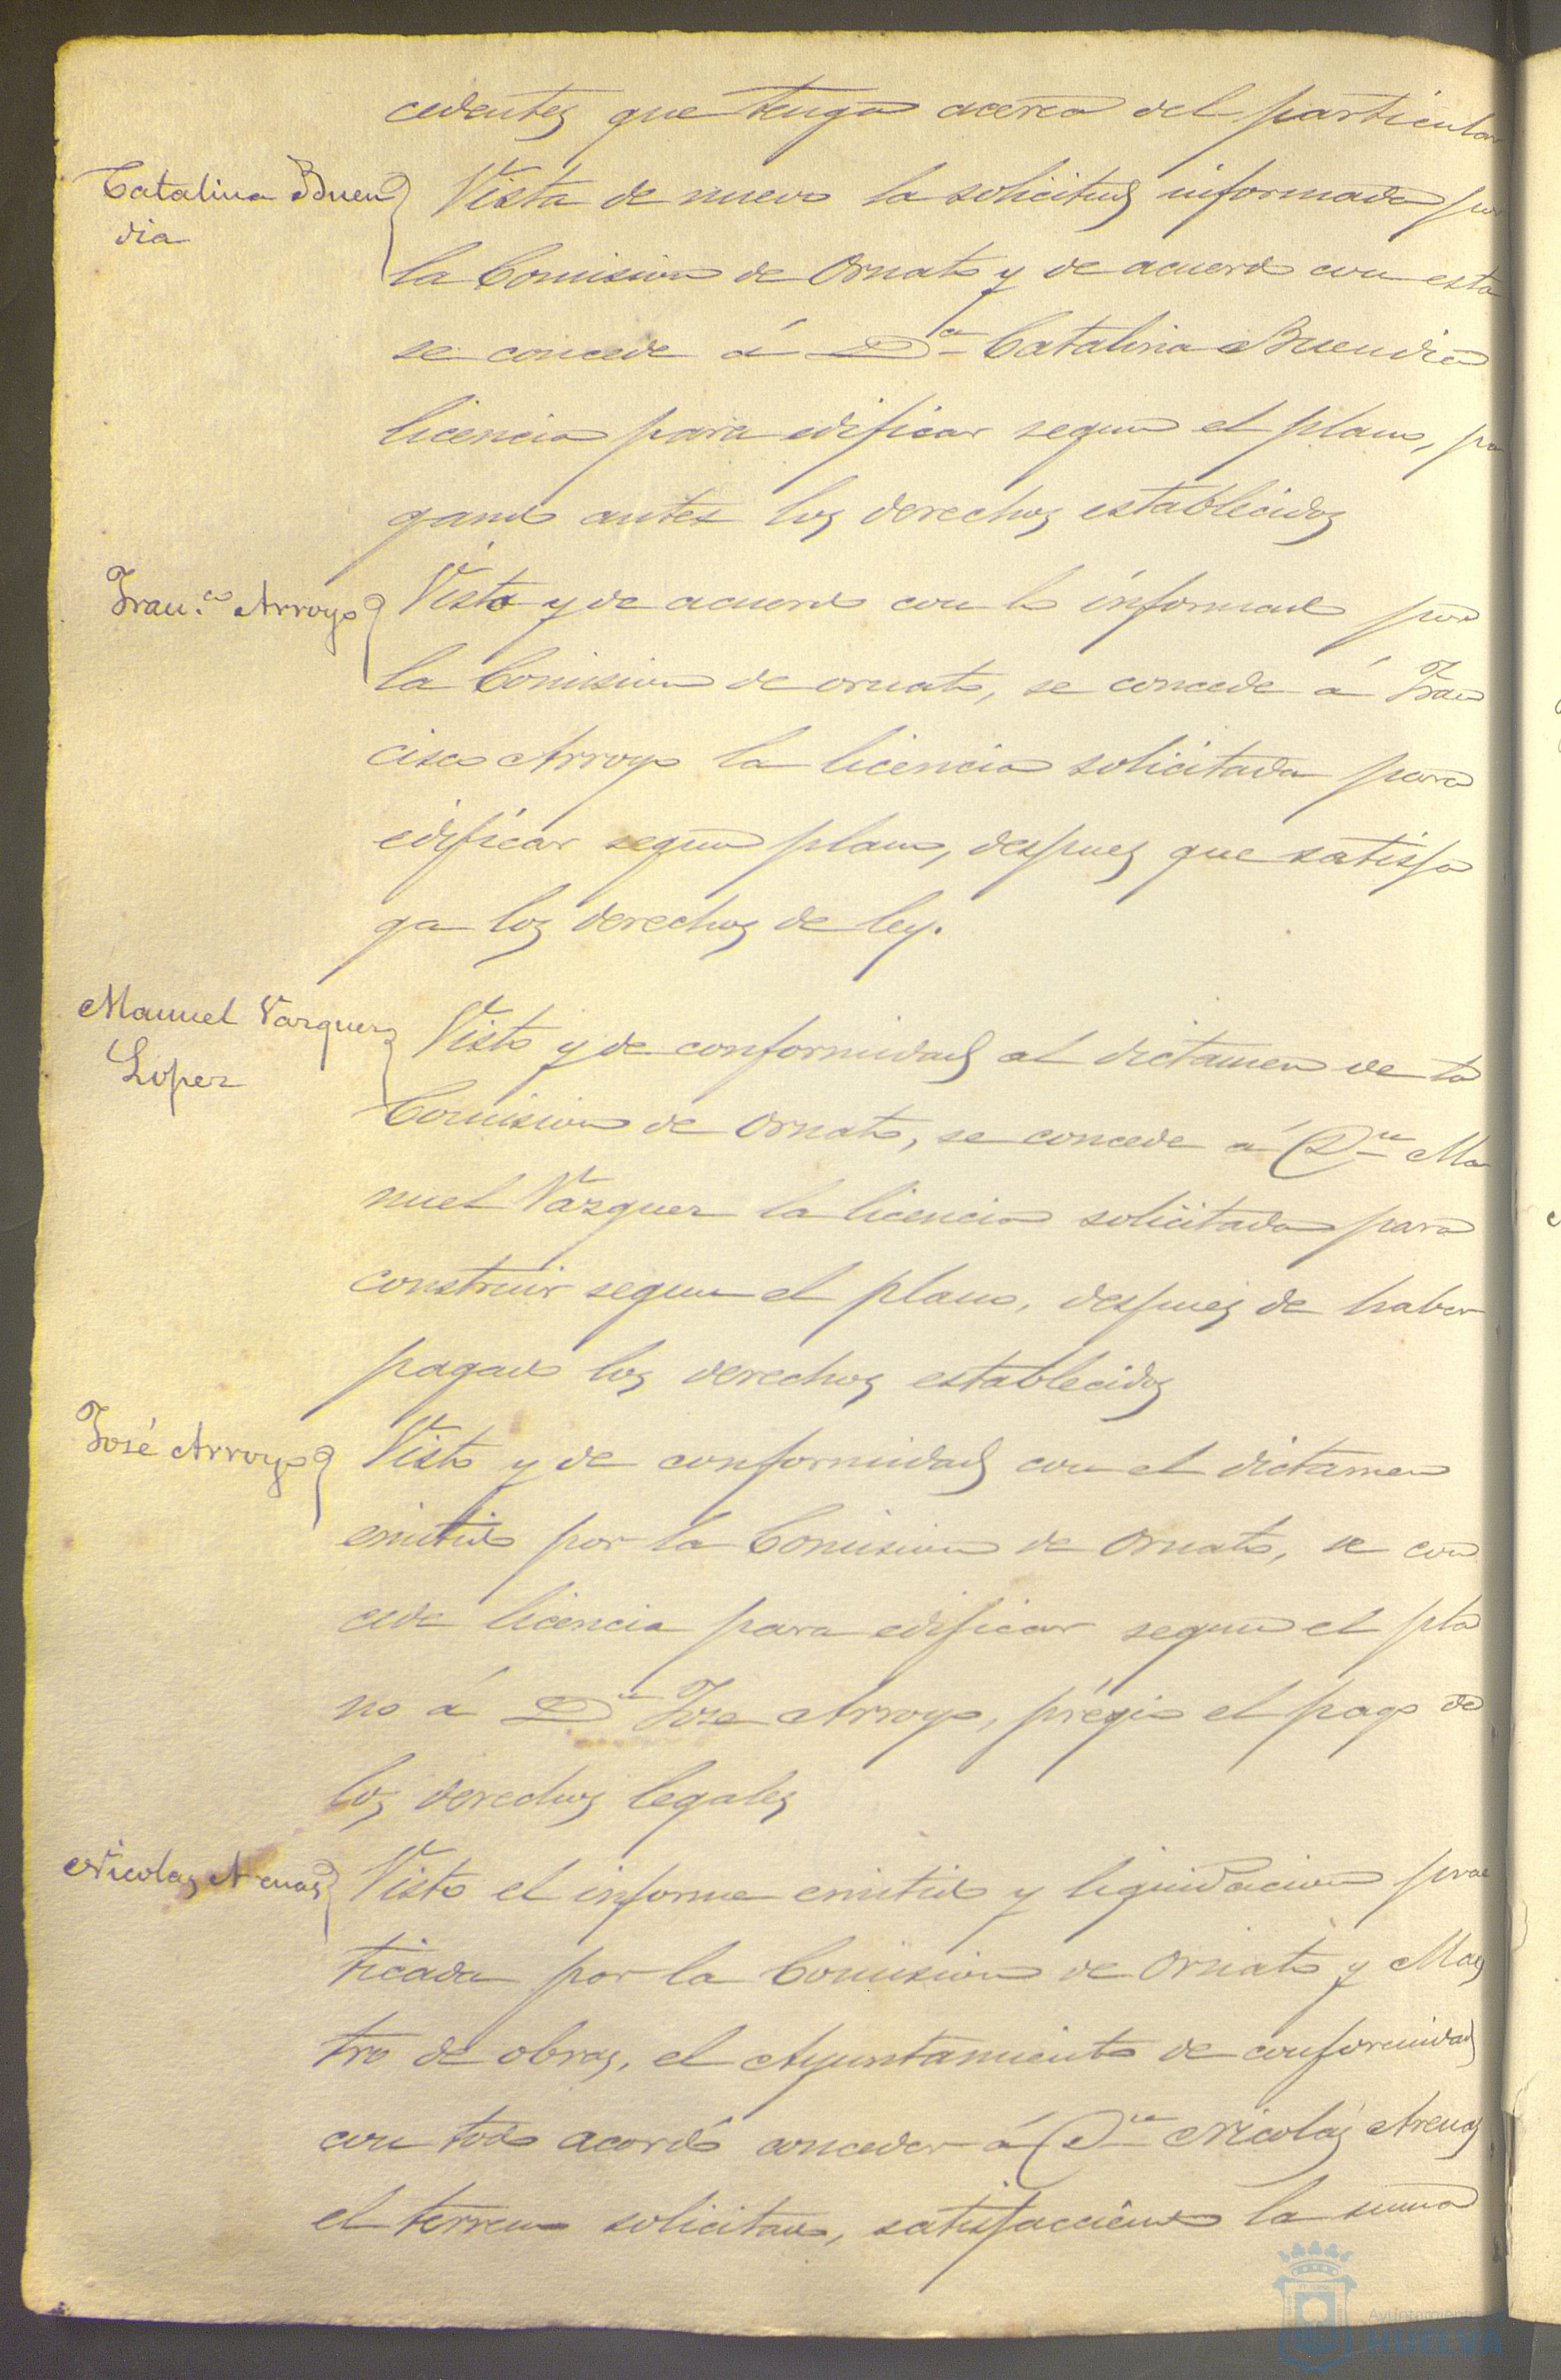 cedentes que tenga acerca del particular
Catalina Buen
dia
Vista de nuevo la solicitud informada por
la Comision de Ornato y de acuerdo con esta
se concede á Dª Catalina Buendia
licencia para edificar segun el plano, pa
gando antes los derechos establecidos
Franco Arroyo
Visto y de acuerdo con lo informado por
la Comision de ornato, se concede á Fran
cisco Arroyo la licencia solicitada para
edificar segun plano, despues que satisfa
ga los derechos de ley.
Manuel Vazquez
Lopez
Visto y de conformidad al dictamen de la
Comision de Ornato, se concede á Dn Ma
nuel Vazquez la licencia solicitada para
construir segun el plano, despues de haber
pagado los derechos establecidos
José Arroyo
Visto y de conformidad con el dictamen
emitido por la Comision de Ornato, se con
cede licencia para edificar segun el pla
no á Dn Jose Arroyo, prévio el pago de
los derechos legales
Nicolas Arenas
Visto el informe emitido y liquidacion prac
ticada por la Comision de Ornato y Maes
tro de obras, el Ayuntamiento de conformidad
con todo acordó conceder á Dn Nicolás Arenas
el terreno solicitado, satisfacciendo la suma
Ayuntamiento
HUELVA